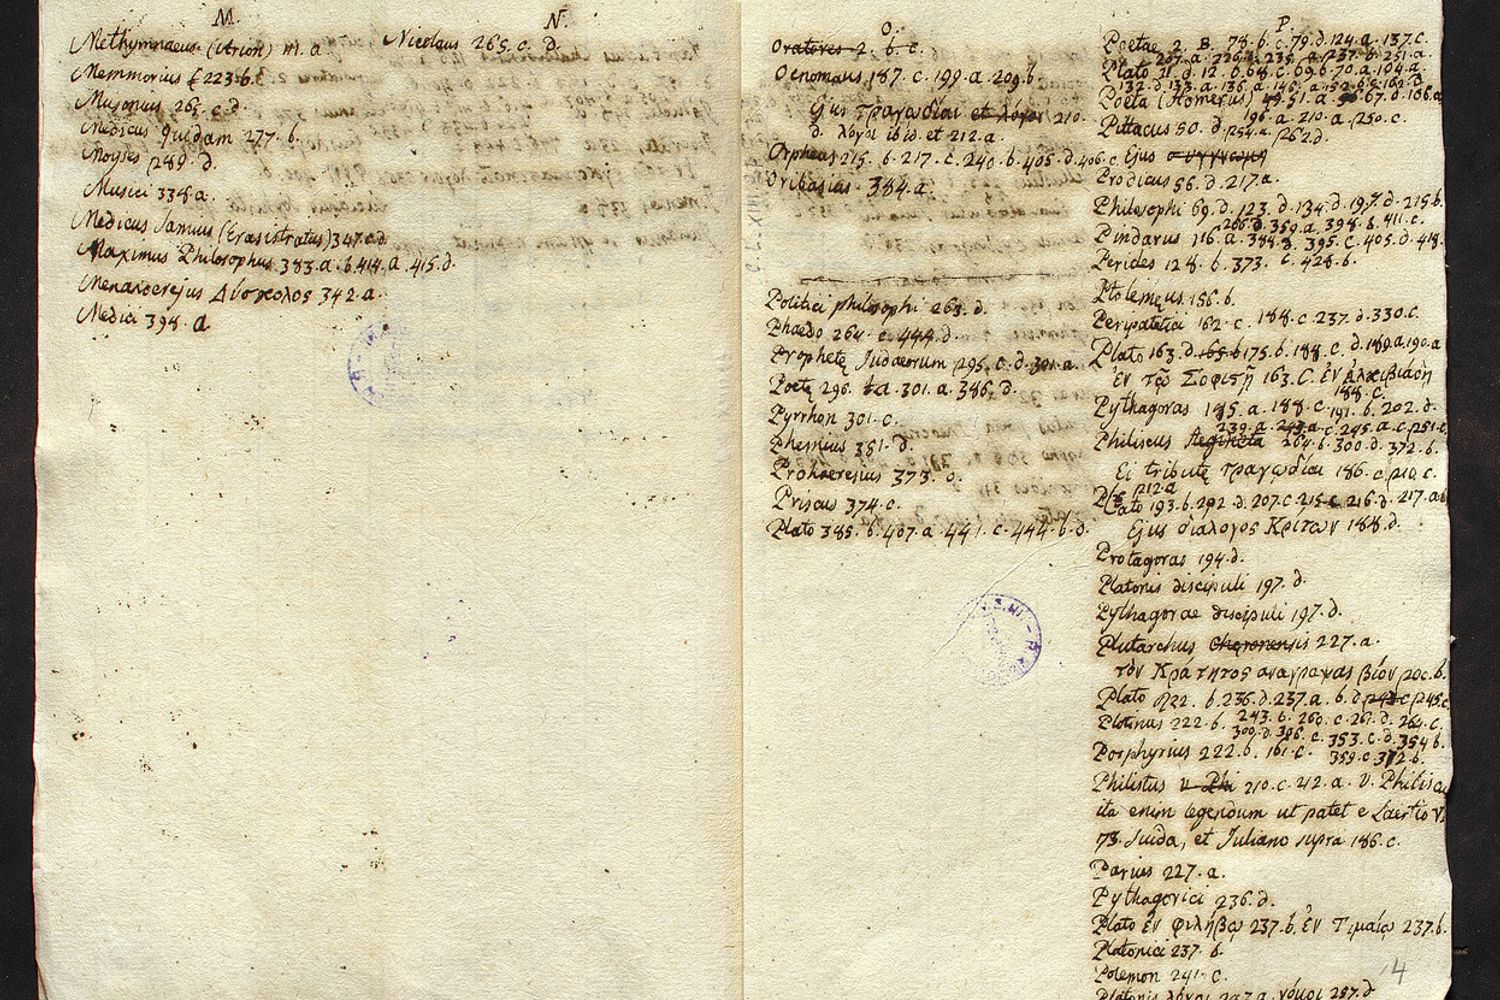 M.
Methymnaeus (Arion) 111. a
Memmorius 223. b.
Musonius 265. c. d.
Medicus quidam 277. b.
Moyses 289. d.
Musici 338. a.
Medicus Samius (Erasistratus) 347. c. d
Maximus Philosophus 383. a. b. 414. a. 415. d.
Menandrejus Δύσκολος 342. a.
Medici 398. a
N.
Nicolaus 265. c. d.
O.
Oratores 2. b. c.
Oenomaus 187. c. 199. a. 209. b
Ejus τραγωδίαι et λόγοι 210.
d. λόγοι ibid. et 212. a.
Orpheus 215. b. 217. c. 240. b. 405. d. 406. c.
Oribasius 384. a.
Politici philosophi 263. d.
Phaedo 264. c. 444. d.
Prophetę Judaeorum 295. c. d. 301. a.
Poetę 296. a. 301. a. 386. d.
Pyrrhon 301. c.
Phemius 351. d.
Prohaeresius 373.
Priscus 374. c.
Plato 385. b. 407. a. 441. c. 444. b. d.
P.
Poetae 2. B. 78. b. c. 79. d. 124. a. 137. c.
Plato 11. d. 12. b. 68. c. 69. b. 70. a. 104. a.
132. d. 133. a. 136. a. 146. a. 150. b. c. 162. d
Poeta (Homerus) 51. a. 67. d. 106. a
196. a. 210. a. 250. c.
Pittacus 50. d. 254. a. 262. d.
Ejus συγγνώμη
Prodicus 56. d. 217. a.
Philosophi 69. d. 123. d. 134. d. 197. d. 215. b.
266. d. 359. a. 398. b. 411. c.
Pindarus 116. a. 388. 395. c. 405. d. 418.
Pericles 128. b. 373. c. 428. b.
Ptolemęus 156. b.
Peripatetici 162. c. 188. c. 237. d. 330. c.
Plato 163. d. 165. b 175. b. 188. c. d. 189. a. 190. a
ἐν τῷ Σοφιστῇ 163. C. ἐν Ἀλκιβιάδῃ
188. c.
Pythagoras 185. a. 188. c. 191. b. 202. d.
239. a. 243. a. c. 245. a. c. 251. c.
Philiscus Aegineta 264. b. 300. d. 372. b.
Ei tributę τραγωδίαι 186. c. 210. c.
212. a
Plato 193. b. 292. d. 207. c. 215. c. 216. d. 217. a.
Ejus διάλογος Κρίτων 188. d.
Protagoras 194. d.
Platonis discipuli 197. d.
Pythagorae discipuli 197. d.
Plutarchus Chęronensis 227. a.
τὸν Κράτητος αναγραψας βίον 200. b.
Plato 222. b. 236. d. 237. a. b. d. 243. c. 245. c.
Plotinus 222. b. 243. b. 260. c. 267. d. 264. c.
300. d. 386. c. 353. c. d. 354 b.
Porphyrius 222. b. 161. c. 359. c. 372. b.
Philistus v. Phi 210. c. 212. a. v. Philisc
ita enim legendum ut patet e Laertio VI
73. Suida, et Juliano supra 186. c.
Parius 227. a.
Pythagorici 236. d.
Plato ἐν φιλήβῳ 237. b. ἐν Τιμαίῳ 237. b.
Platonici 237. b.
Polemon 241. c.
Platonis λόγοι 287. a. νόμοι 287. d
4